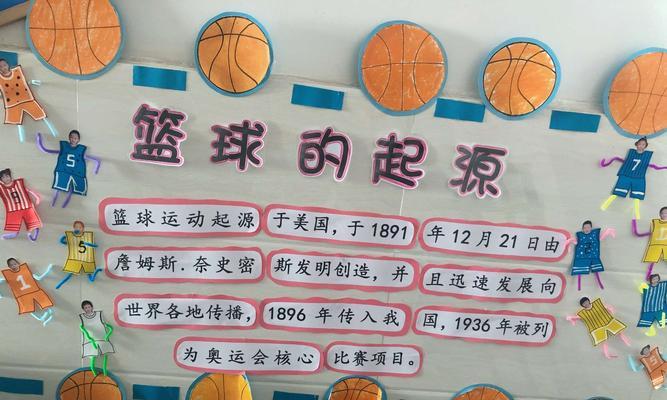 篮球的起源
篮球运动起源于美国，于1891年12月21日由
詹姆斯.奈史密斯发明创造，并且迅速发展向
世界各地传播，1896年传入我国，1936年被列
为奥运会核心比赛项目。
5
5
1
7